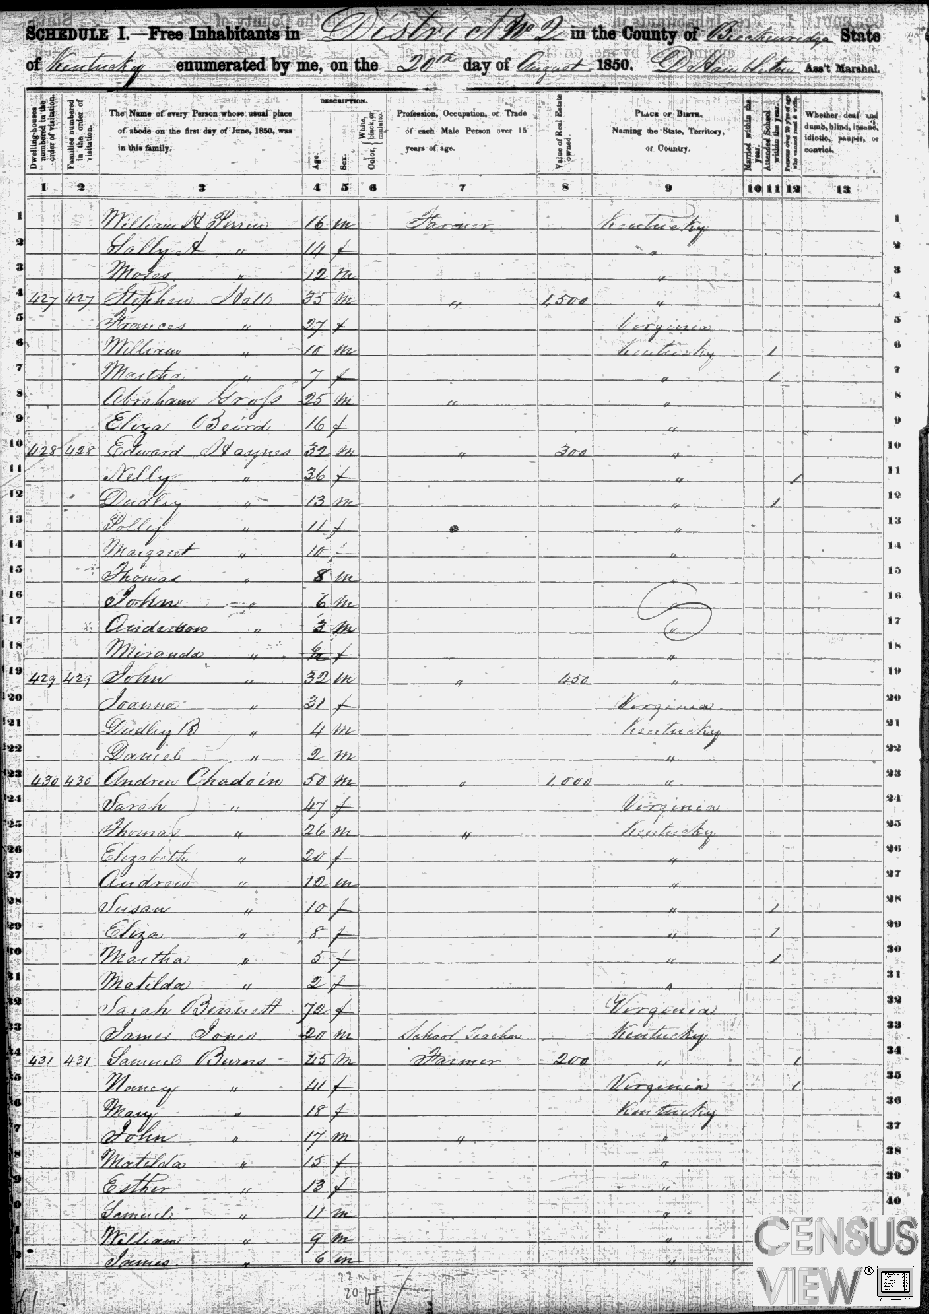 SCHEDULE I.—Free Inhabitants in District No 2 in the County of Breckenridge State
of Kentucky enumerated by me, on the 20th day of August 1850. Ass't Marshal.
Dwelling-houses numbered in the order of visitation.
Families numbered in the order of visitation.
The Name of every Person whose usual place of abode on the first day of June, 1850, was in this family.
DESCRIPTION.
Age.
Sex.
Color, { White, black, or mulatto.
Profession, Occupation, or Trade of each Male Person over 15 years of age.
Value of Real Estate owned.
PLACE OF BIRTH. Naming the State, Territory, or Country.
Married within the year.
Attended School within the year.
Persons over 20 y'rs of age who cannot read & write.
Whether deaf and dumb, blind, insane, idiotic, pauper, or convict.
1 2 3 4 5 6 7 8 9 10 11 12 13
1 William H Perrin 16 m Farmer Kentucky 1
2 Sally A " 14 f " 2
3 Moses " 12 m " 3
4 427 427 Stephen Hall 35 m " 1,500 " 4
5 Frances " 27 f Virginia 5
6 William " 10 m Kentucky 1 6
7 Martha " 7 f " 1 7
8 Abraham Gross 25 m " " 8
9 Eliza Beird 16 f " 9
10 428 428 Edward Haynes 32 m " 300 " 10
11 Nelly " 36 f " 1 11
12 Dudley " 13 m " 1 12
13 Polly " 11 f " 13
14 Margaret " 10 " 14
15 Thomas " 8 m " 15
16 John " 6 m 16
17 Anderson " 3 m " 17
18 Miranda " f " 18
19 429 429 John " 32 m " 450 " 19
20 Joanna " 31 f Virginia 20
21 Dudley B " 4 m Kentucky 21
22 Daniel " 2 m " 22
23 430 430 Andrew Chadoin 50 m " 1,000 " 23
24 Sarah " 47 f Virginia 24
25 Thomas " 26 m " Kentucky 25
26 Elizabeth " 20 f " 26
27 Andrew " 12 m " 27
28 Susan " 10 f " 1 28
29 Eliza " 8 f " 1 29
30 Martha " 5 f " 1 30
31 Matilda " 2 f " 31
32 Sarah Bennett 72 f Virginia 32
33 James Jones 20 m School Teacher Kentucky 33
34 431 431 Samuel Burns 45 m Farmer 200 " 1 34
35 Nancy " 41 f Virginia 1 35
36 Mary " 18 f Kentucky 36
37 John " 17 m " " 37
38 Matilda " 15 f " 38
39 Esther " 13 f " 39
40 Samuel " 11 m " 40
William " 9 m "
James " 6 m
22 m
20 f
CENSUS
VIEW®